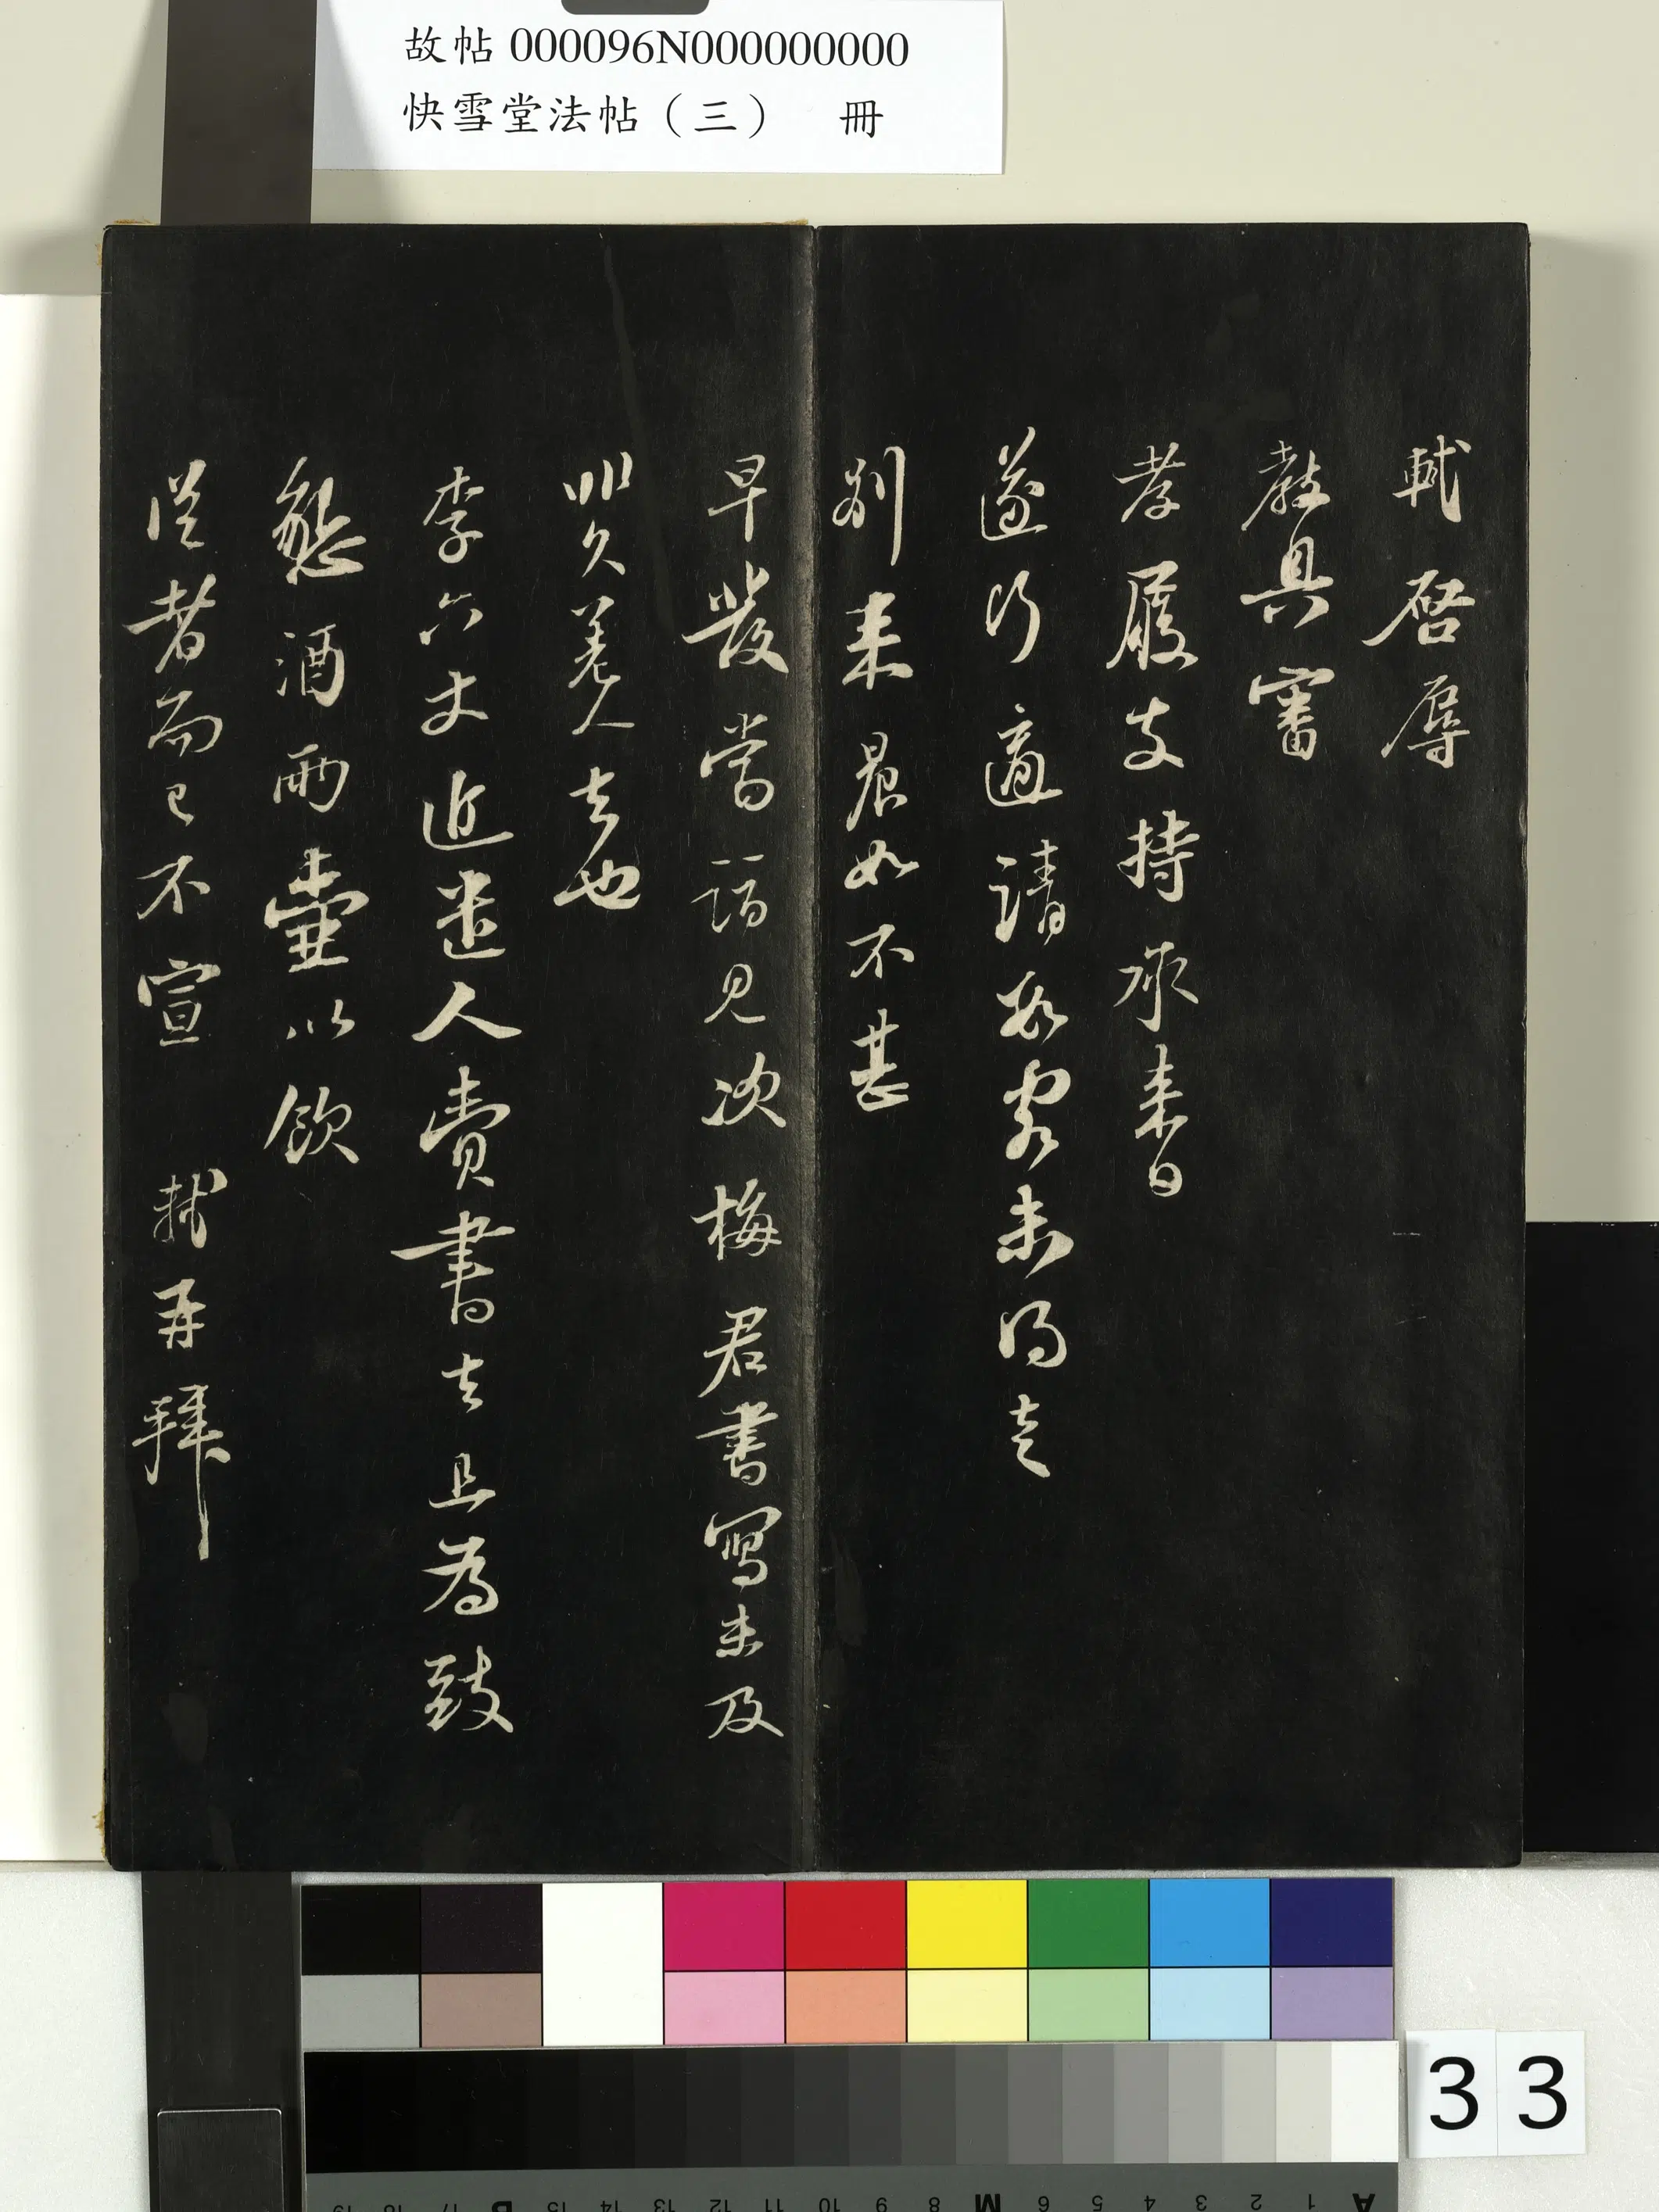 故帖 000096N000000000
快雪堂法帖（三） 冊
軾啓辱
教具審
孝履支持承来日
遂行適請數客未得走
別来晨如不甚
早發當詣見次梅君書寫未及
非久差人去也
李六丈近遣人賫書去且為致
懇酒兩壺以飲
從者而已不宣 軾再拜
33